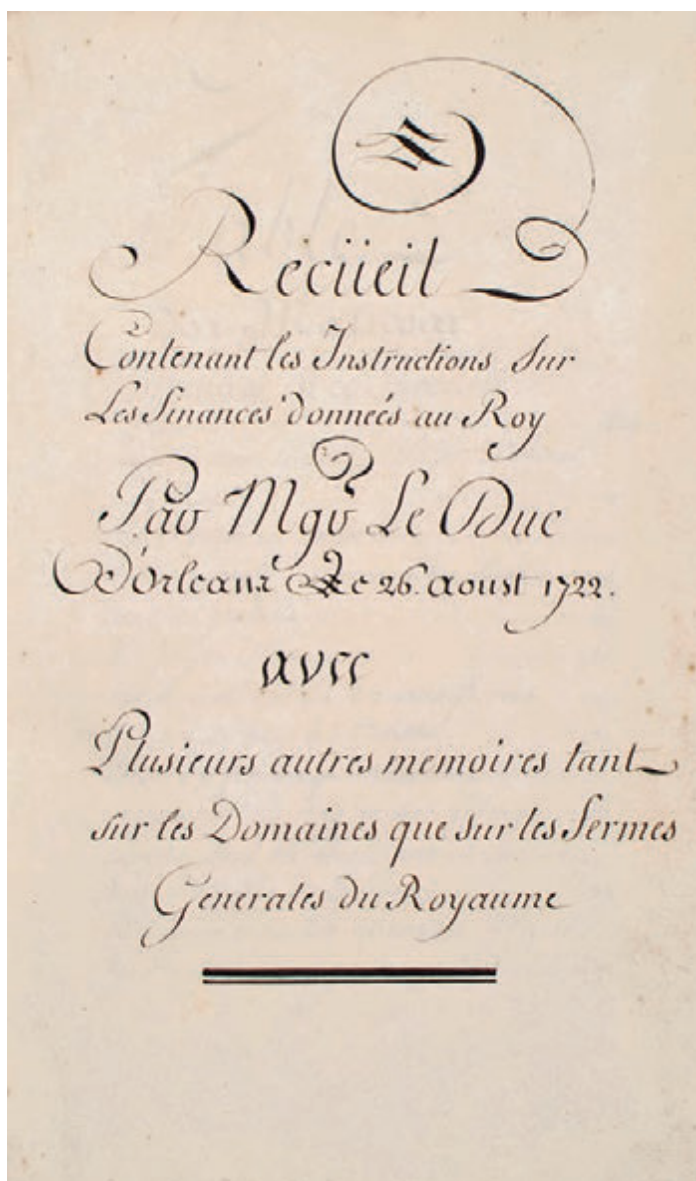 Recüeil
Contenant les Instructions sur
Les finances données au Roy
Par Mgr Le Duc
D'orleans Le 26. aoust 1722.
avec
Plusieurs autres memoires tant
sur les Domaines que sur les fermes
Generales du Royaume